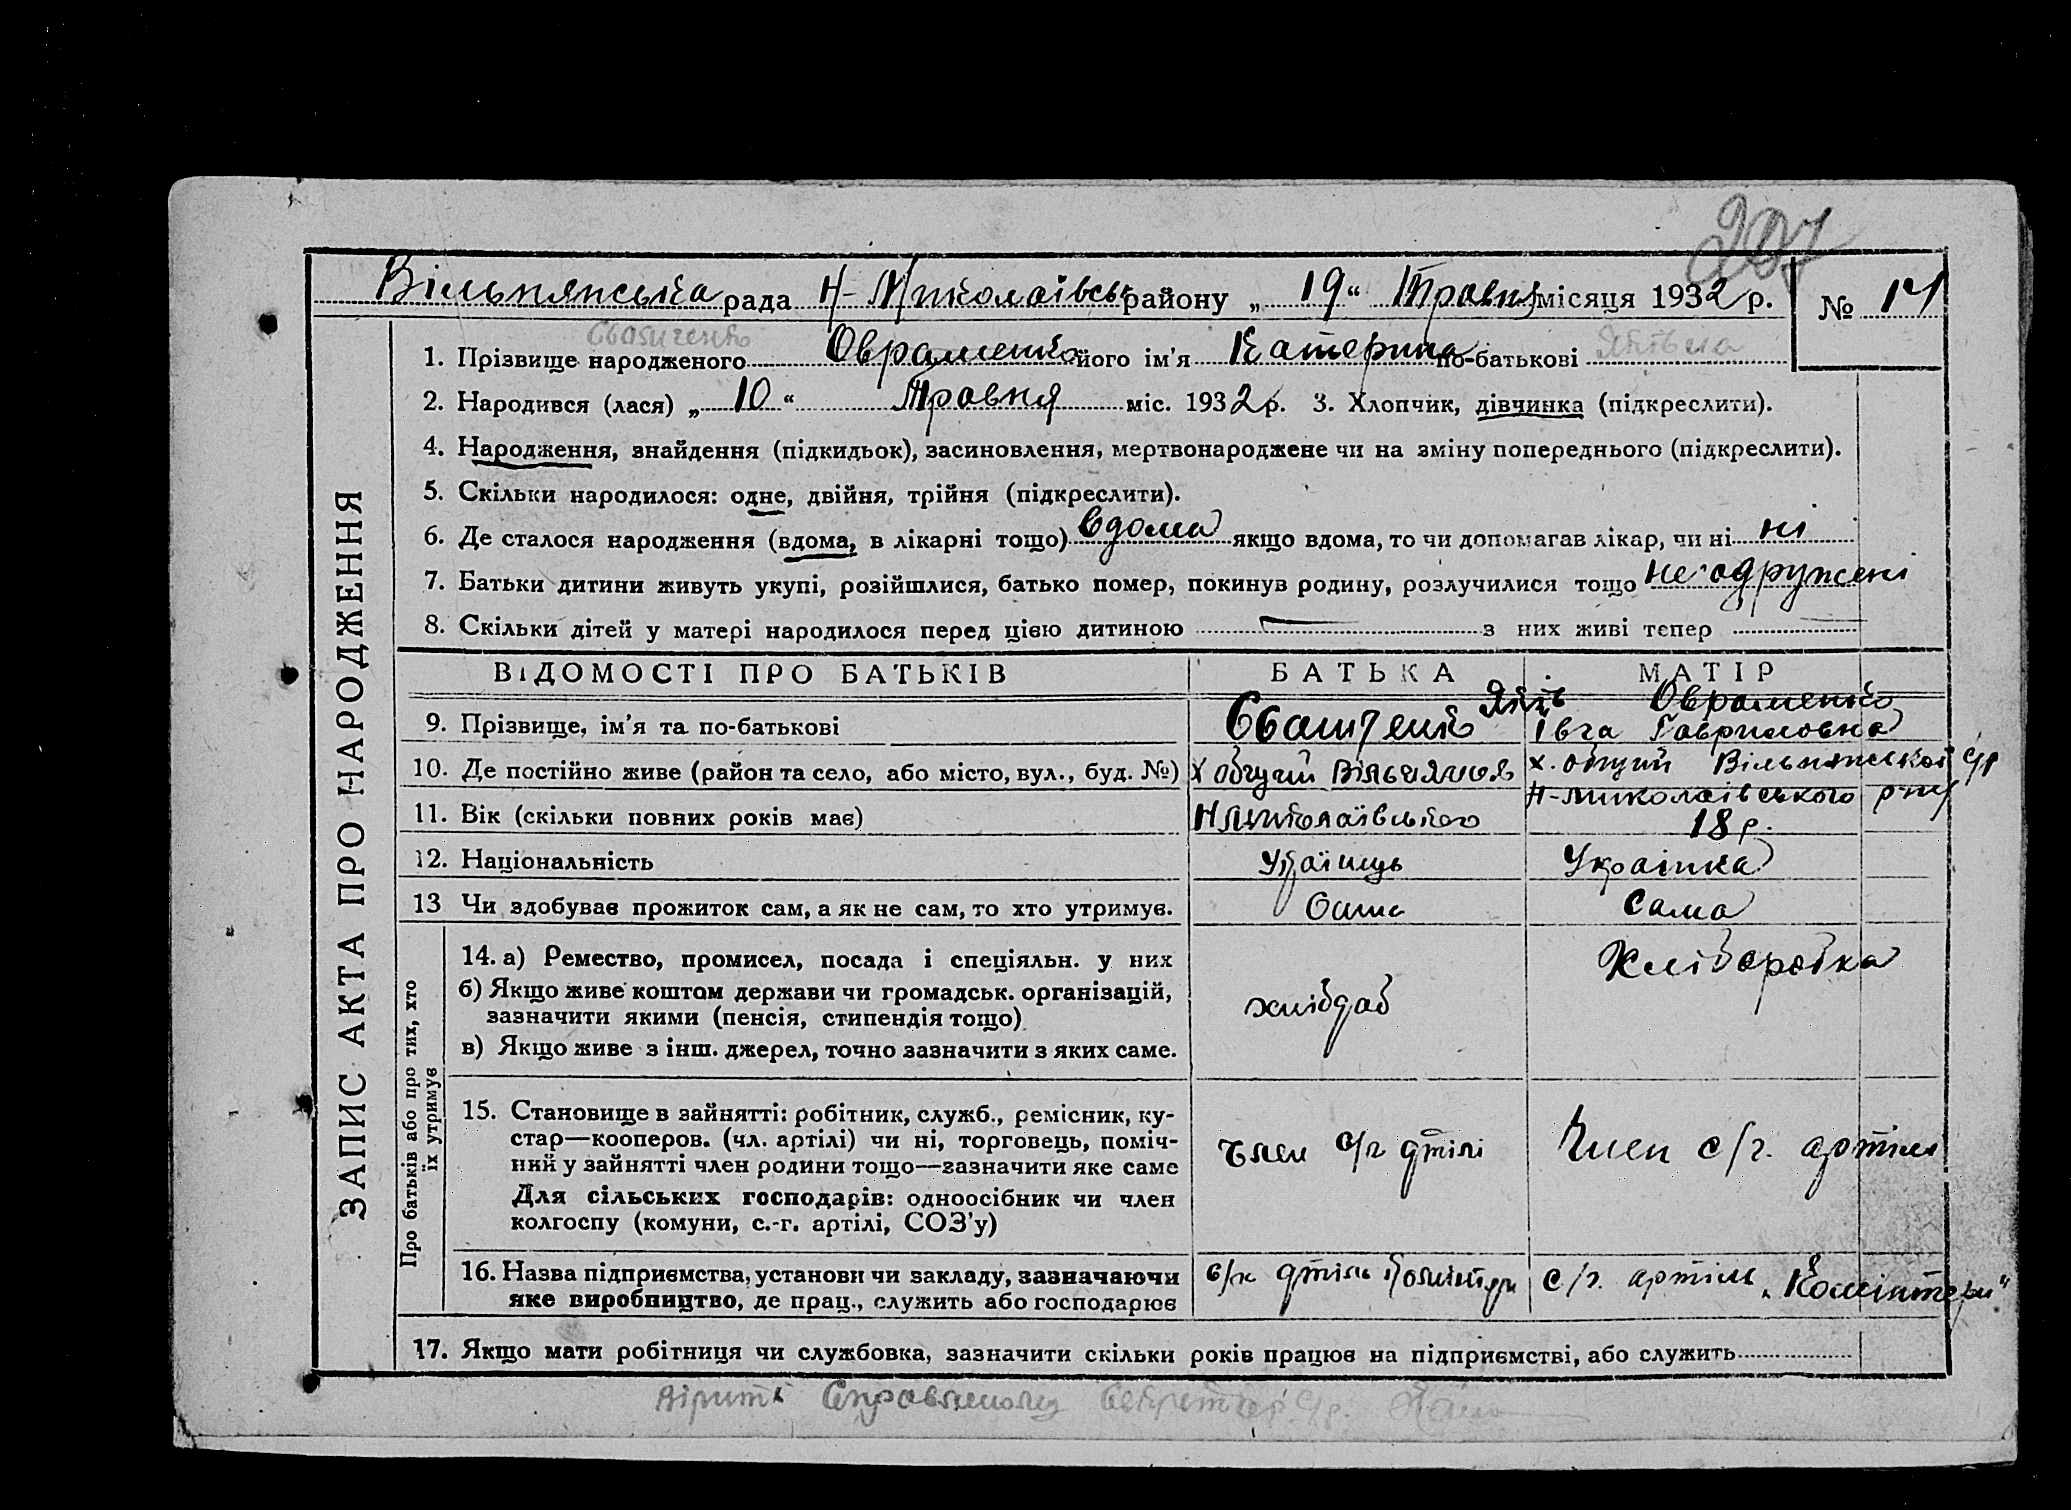 207
Вільнянська рада Н-Миколаївськ району „ 19 “ Травня місяця 1932 р. № 14
1. Прізвище народженого Овраменко його ім'я Катерина по-батькові
2. Народився (лася) „ 10 “ Травня міс. 1932 р. 3. Хлопчик, дівчинка (підкреслити).
4. Народження, знайдення (підкидьок), засиновлення, мертвонароджене чи на зміну попереднього (підкреслити).
5. Скільки народилося: одне, двійня, трійня (підкреслити).
6. Де сталося народження (вдома, в лікарні тощо) вдома якщо вдома, то чи допомагав лікар, чи ні ні
7. Батьки дитини живуть укупі, розійшлися, батько помер, покинув родину, розлучилися тощо не одружені
8. Скільки дітей у матері народилося перед цією дитиною — з них живі тепер —
ЗАПИС АКТА ПРО НАРОДЖЕННЯ
ВІДОМОСТІ ПРО БАТЬКІВ БАТЬКА МАТІР
Овраменко
9. Прізвище, ім'я та по-батькові Івга Гавриловна
10. Де постійно живе (район та село, або місто, вул., буд. №) х. Вільнянської с/р
Н-Миколаівського р-ну
11. Вік (скільки повних років має) 18 р.
12. Національність Українець Українка
13 Чи здобуває прожиток сам, а як не сам, то хто утримує. Сама
Про батьків або про тих, хто
їх утримує
14. а) Ремество, промисел, посада і спеціяльн. у них Хліборобка
б) Якщо живе коштом держави чи громадськ. організацій,
зазначити якими (пенсія, стипендія тощо) хлібороб
в) Якщо живе з інш. джерел, точно зазначити з яких саме.
15. Становище в зайнятті: робітник, служб., ремісник, ку-
стар—кооперов. (чл. артілі) чи ні, торговець, поміч- член с/г артілі Член с/г. артілі
ний у зайнятті член родини тощо—зазначити яке саме
Для сільських господарів: одноосібник чи член
колгоспу (комуни, с.-г. артілі, СОЗ'у)
16. Назва підприємства, установи чи закладу, зазначаючи с/г артіль Комінтерн с./г. артіль „Комінтерн“
яке виробництво, де прац., служить або господарює
17. Якщо мати робітниця чи службовка, зазначити скільки років працює на підприємстві, або служить